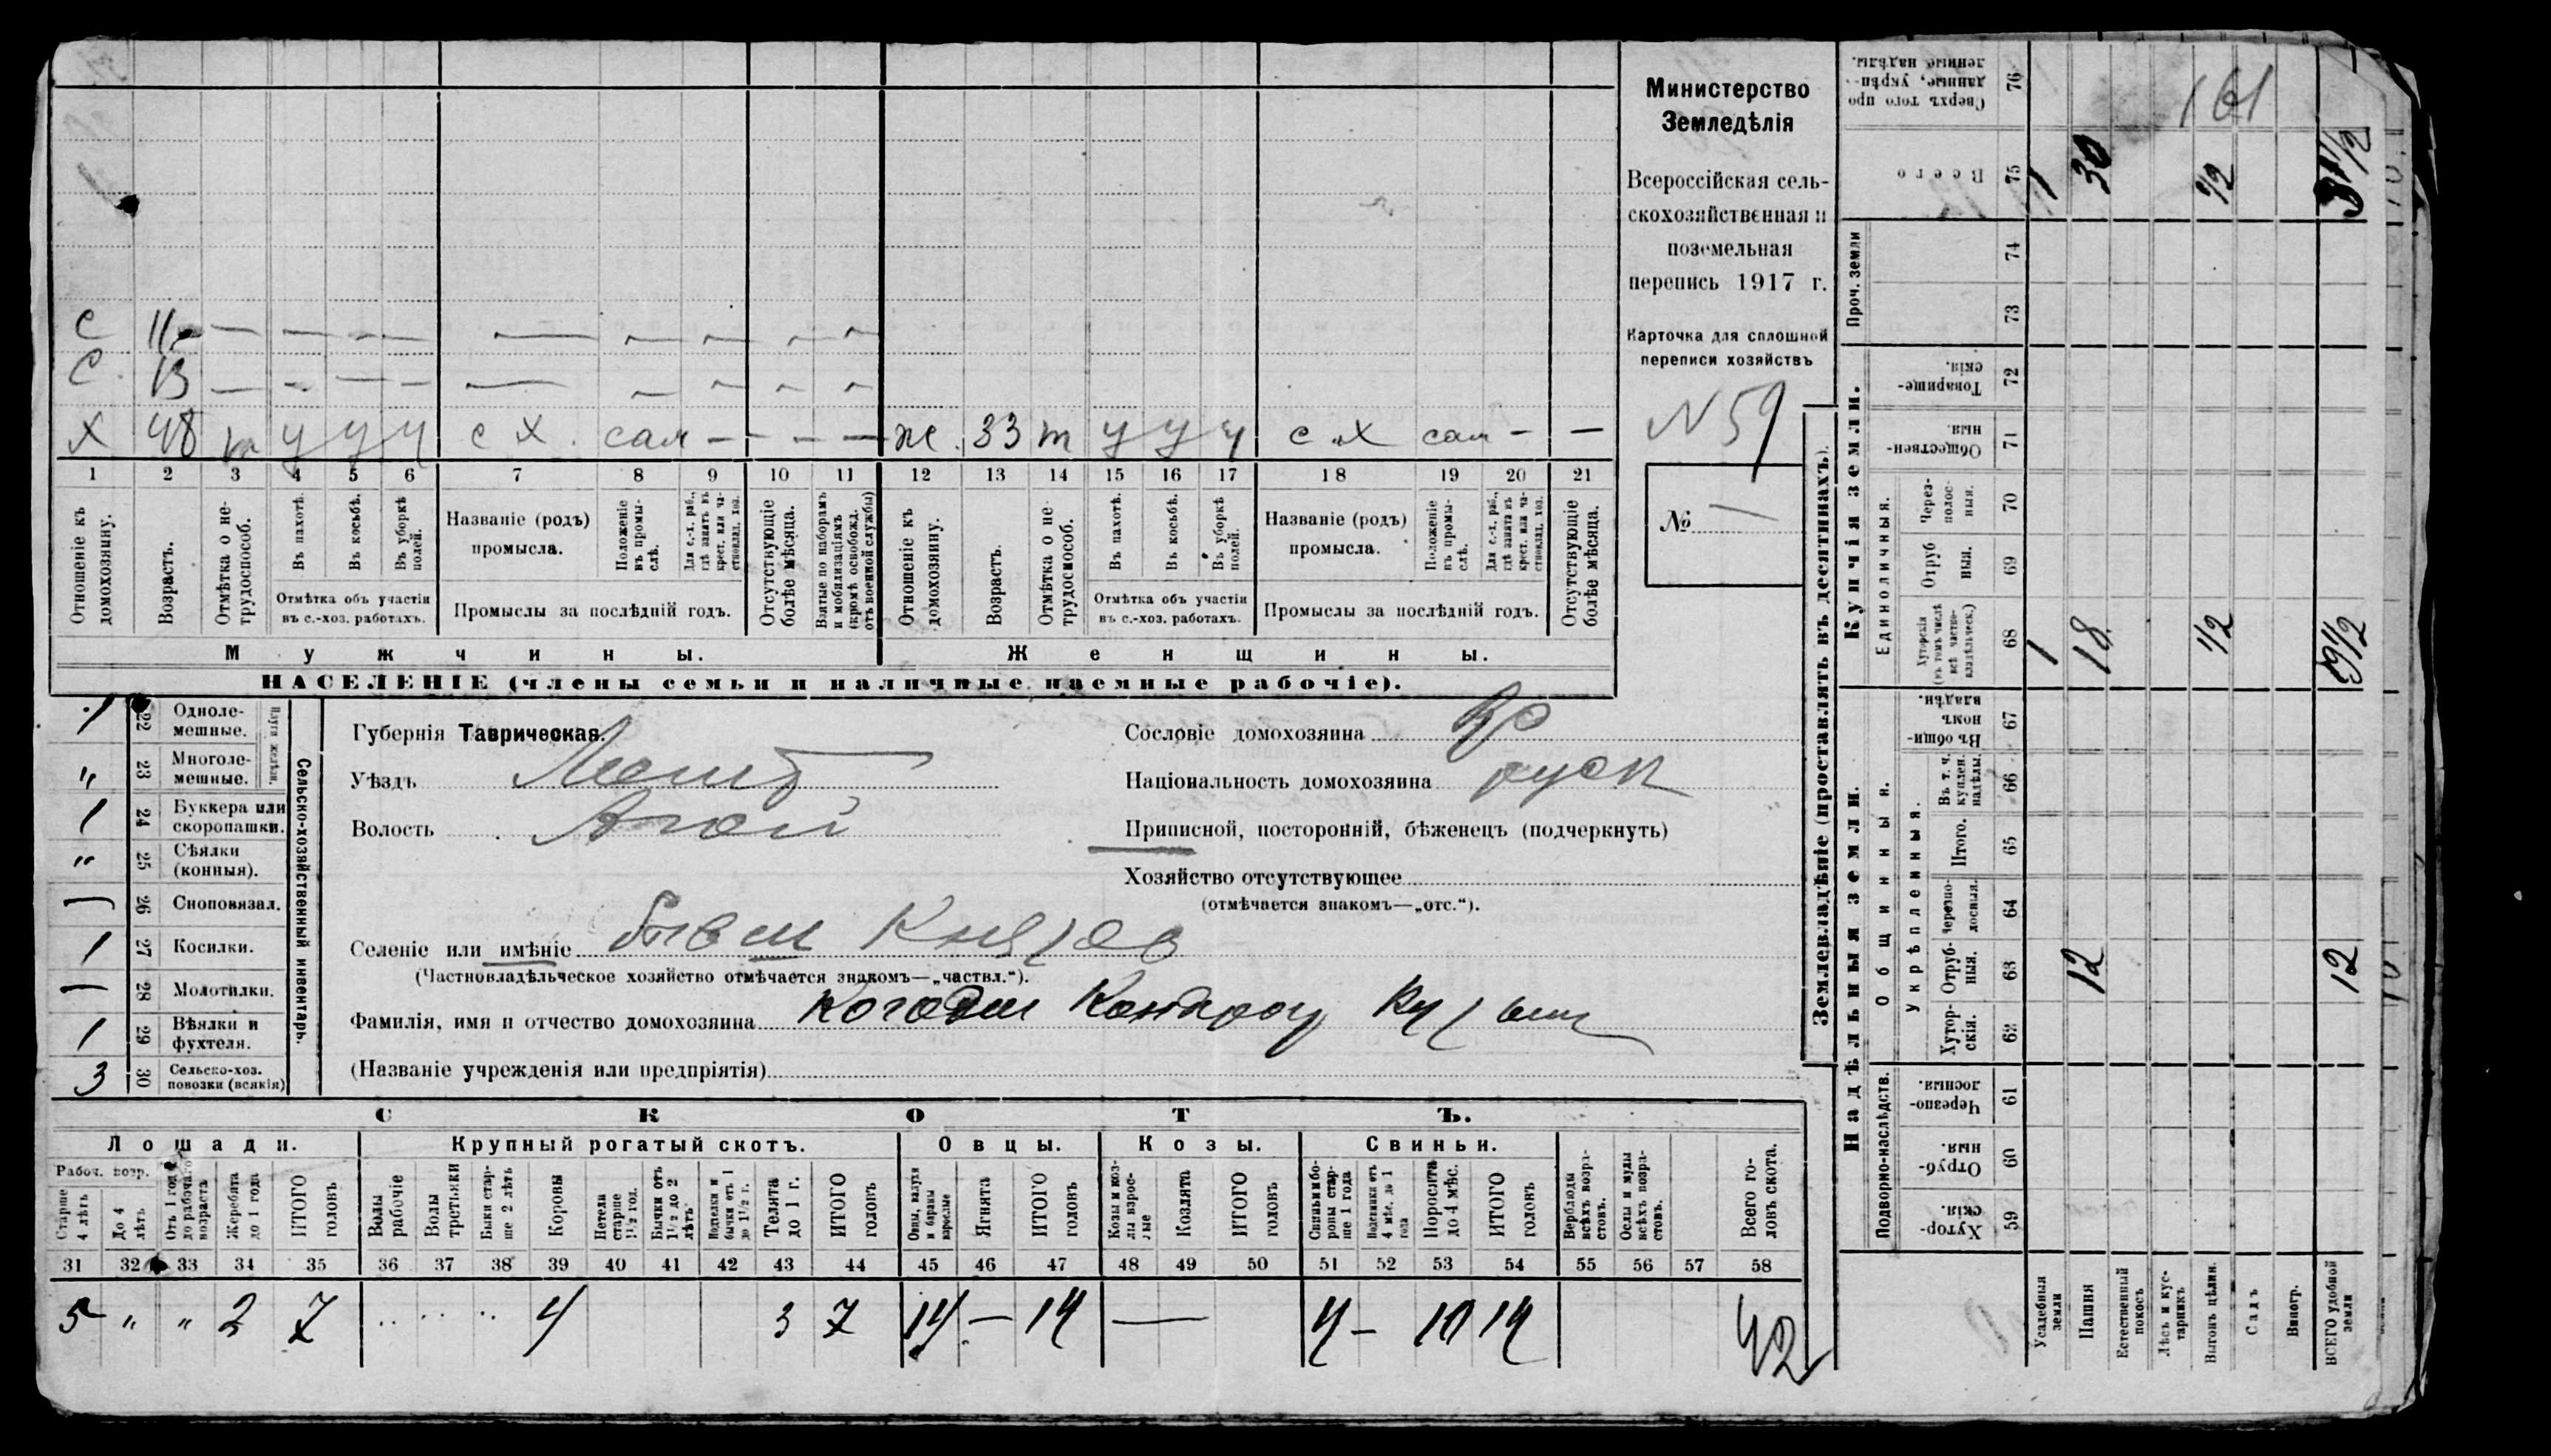 Министерство
Земледѣлія
Всероссійская сель-
скохозяйственная и
поземельная
перепись 1917 г.
Карточка для сплошной
переписи хозяйствъ
N 59
№ —
С 11 — — — — — — — — —
С. 13 — — — — — — — — —
Х 48 т у у у с х. сам — — — — ж. 33 т у у у с х сам — —
1 2 3 4 5 6 7 8 9 10 11 12 13 14 15 16 17 18 19 20 21
Отношеніе къ домохозяину.
Возрастъ.
Отмѣтка о не-трудоспособ.
Въ пахотѣ.
Въ косьбѣ.
Въ уборкѣ полей.
Отмѣтка объ участіи
въ с.-хоз. работахъ.
Названіе (родъ)
промысла.
Положеніе въ промы-слѣ.
Для с.-х. раб., гдѣ занятъ въ крест. или ча-стновлад. хоз.
Промыслы за послѣдній годъ.
Отсутствующіе болѣе мѣсяца.
Взятые по наборамъ и мобилизаціямъ (кромѣ освобожд. отъ военной службы)
Отношеніе къ домохозяину.
Возрастъ.
Отмѣтка о не-трудоспособ.
Въ пахотѣ.
Въ косьбѣ.
Въ уборкѣ полей.
Отмѣтка объ участіи
въ с.-хоз. работахъ.
Названіе (родъ)
промысла.
Положеніе въ промы-слѣ.
Для с.-х. раб., гдѣ занята въ крест. или ча-стновлад. хоз.
Промыслы за послѣдній годъ.
Отсутствующіе болѣе мѣсяца.
Мужчины.
Женщины.
НАСЕЛЕНІЕ (члены семьи и наличные наемные рабочіе).
Сельско-хозяйственный инвентарь.
1 22 Одноле-мешные.
" 23 Многоле-мешные.
1 24 Буккера или скоропашки.
" 25 Сѣялки (конныя).
— 26 Сноповязал.
1 27 Косилки.
— 28 Молотилки.
1 29 Вѣялки и фухтеля.
3 30 Сельско-хоз. повозки (всякія)
Губернія Таврическая.
Уѣздъ Мелит
Волость
Сословіе домохозяина кр
Національность домохозяина руск
Приписной, посторонній, бѣженецъ (подчеркнуть)
Хозяйство отсутствующее
(отмѣчается знакомъ—„отс.“).
Селеніе или имѣніе бывш Князев
(Частновладѣльческое хозяйство отмѣчается знакомъ—„частвл.“).
Фамилія, имя и отчество домохозяина Кондрат
(Названіе учрежденія или предпріятія)
СКОТЪ.
Лошади. Крупный рогатый скотъ. Овцы. Козы. Свиньи.
Рабоч. возр.
Старше 4 лѣтъ
До 4 лѣтъ
Отъ 1 года до рабочаго возраста
Жеребята до 1 года
ИТОГО головъ
Волы рабочіе
Волы третьяки
Быки стар-ше 2 лѣтъ
Коровы
Нетели старше 1½ год.
Бычки отъ 1½ до 2 лѣтъ
Подтелки и бычки отъ 1 до 1½ г.
Телята до 1 г.
ИТОГО головъ
Овцы, валухи и бараны взрослые
Ягнята
ИТОГО головъ
Козы и коз-лы взрос-лые
Козлята
ИТОГО головъ
Свиньи и бо-ровы стар-ше 1 года
Подсвинки отъ 4 мѣс. до 1 года
Поросята до 4 мѣс.
ИТОГО головъ
Верблюды всѣхъ возра-стовъ.
Ослы и мулы всѣхъ возра-стовъ.
Всего го-ловъ скота.
31 32 33 34 35 36 37 38 39 40 41 42 43 44 45 46 47 48 49 50 51 52 53 54 55 56 57 58
5 " " 2 7 4 3 7 14 — 14 — 4 — 10 14 42
Землевладѣніе (проставлять въ десятинахъ).
Надѣльныя земли.
Купчія земли.
Проч. земли
Подворно-наслѣдств.
Общинныя.
Укрѣпленныя.
Единоличныя.
Хутор-скія. 59
Отруб-ныя. 60
Черезпо-лосныя. 61
Хутор-скія. 62
Отруб-ныя. 63
Черезпо-лосныя. 64
Итого. 65
Въ т. ч. куплен. надѣлы. 66
Въ общин-номъ владѣн. 67
Хуторскія (въ томъ числѣ всѣ частно-владѣльческ.) 68
Отруб ныя. 69
Через-полос-ныя. 70
Обществен-ныя. 71
Товарище-скія. 72
73
74
Всего 75
Сверхъ того про данные, укрѣп-ленные надѣлы. 76
Усадебныя земли 1 1
Пашня 12 18 30
Естественный покосъ
Лѣсъ и кус-тарникъ
Выгонъ цѣлин. 1/2 1/2
Садъ
Виногр.
ВСЕГО удобной земли 12 19 1/2 31 1/2
161